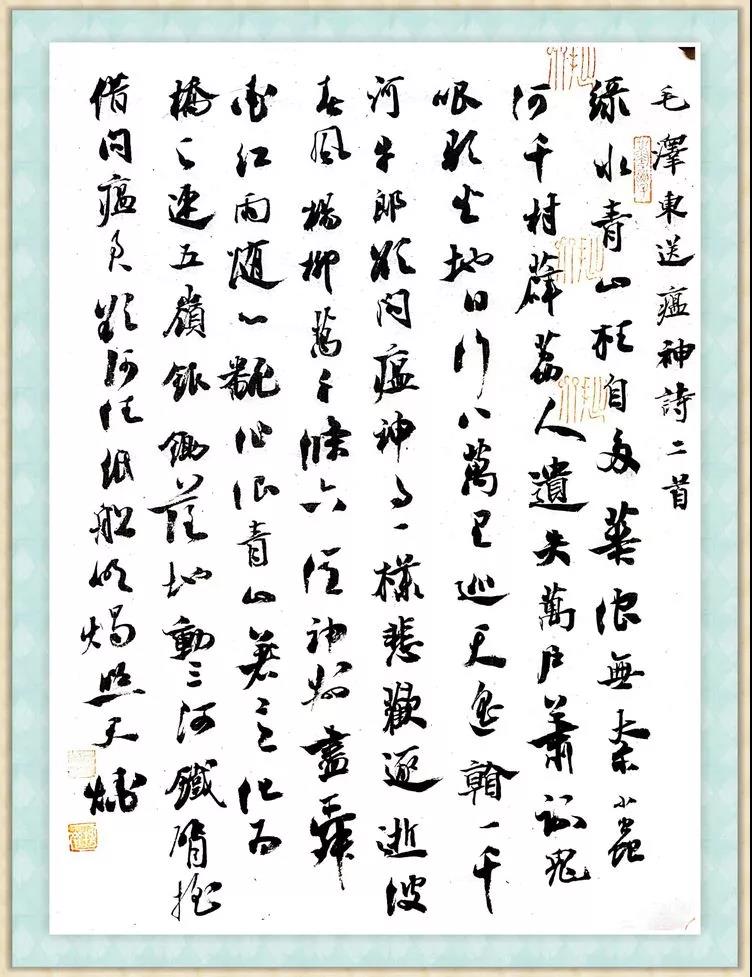 毛澤東送瘟神詩二首
綠水青山枉自多華佗無奈小蟲
何千村薜荔人遺失萬戶蕭疏鬼
唱歌坐地日行八萬里巡天遙一千
河牛郎欲問瘟神事一樣悲歡逐逝波
春風楊柳萬千條六億神州盡舜
堯紅雨隨心翻作浪青山著意化為
橋連五嶺銀鋤落地動三河鐵臂搖
借問瘟君欲何往紙船明燭照天燒